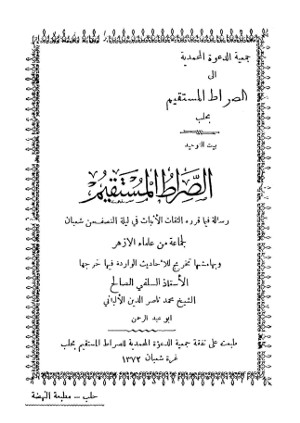 جمعية الدعوة المحمدية
الى
الصراط المستقيم
بحلب
بيت التوحيد
الصراط المستقيم
رسالة فيما قرره الثقات الأثبات في ليلة النصف من شعبان
لجماعة من علماء الازهر
وبهامشها تخريج للأحاديث الواردة فيها خرجها
الأستاذ السلفي الصالح
الشيخ محمد ناصر الدين الألباني
ابو عبد الرحمن
طبعت على نفقة جمعية الدعوة المحمدية للصراط المستقيم بحلب
غرة شعبان ١٣٧٢
حلب – مطبعة النهضة